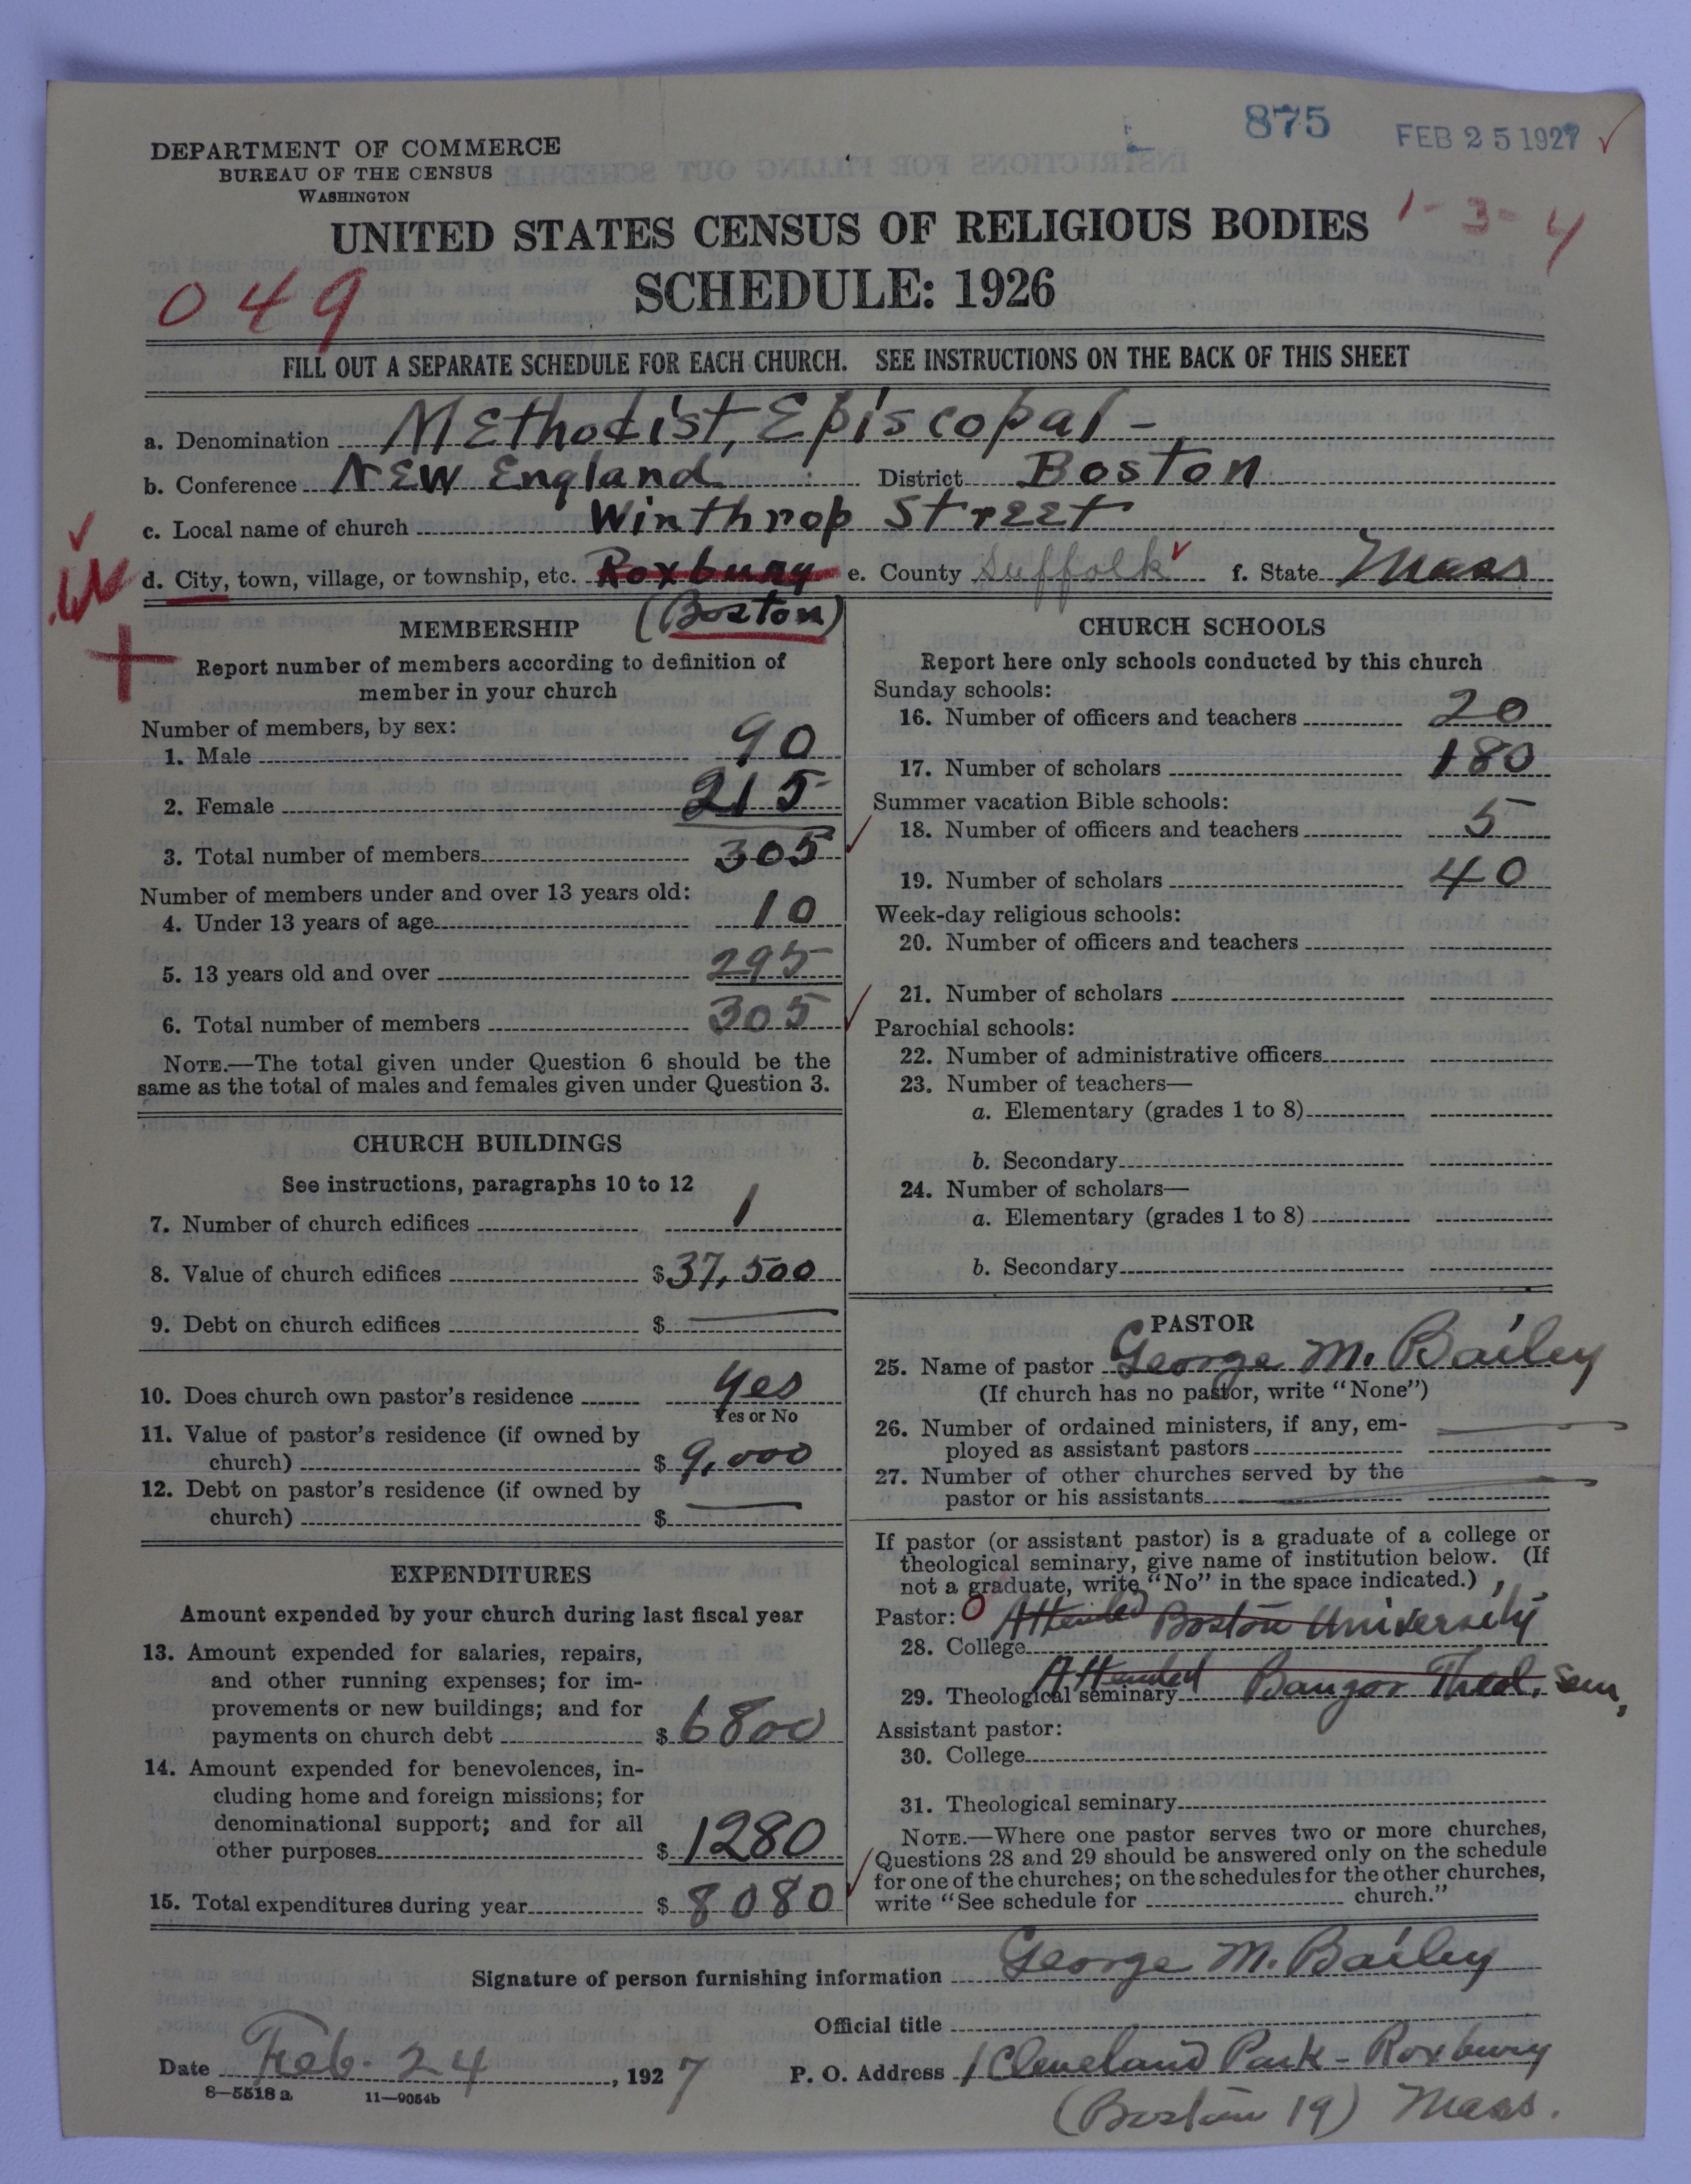 875 FEB 25 1927
DEPARTMENT OF COMMERCE
BUREAU OF THE CENSUS
WASHINGTON
1-3-4
UNITED STATES CENSUS OF RELIGIOUS BODIES
SCHEDULE: 1926
049
FILL OUT A SEPARATE SCHEDULE FOR EACH CHURCH. SEE INSTRUCTIONS ON THE BACK OF THIS SHEET
a. Denomination Methodist, Episcopal -
b. Conference New England District Boston
c. Local name of church Winthrop Street
d. City, town, village, or township, etc. Roxbury e. County Suffolk f. State Mass
(Boston)
MEMBERSHIP
Report number of members according to definition of
member in your church
Number of members, by sex:
1. Male 90
2. Female 215
3. Total number of members 305
Number of members under and over 13 years old:
4. Under 13 years of age 10
5. 13 years old and over 295
6. Total number of members 305
NOTE.—The total given under Question 6 should be the
same as the total of males and females given under Question 3.
CHURCH BUILDINGS
See instructions, paragraphs 10 to 12
7. Number of church edifices 1
8. Value of church edifices $37,500
9. Debt on church edifices $ —
10. Does church own pastor's residence Yes
Yes or No
11. Value of pastor's residence (if owned by
church) $ 9,000
12. Debt on pastor's residence (if owned by
church) $ —
EXPENDITURES
Amount expended by your church during last fiscal year
13. Amount expended for salaries, repairs,
and other running expenses; for im-
provements or new buildings; and for
payments on church debt $ 6800
14. Amount expended for benevolences, in-
cluding home and foreign missions; for
denominational support; and for all
other purposes $ 1280
15. Total expenditures during year $ 8080
CHURCH SCHOOLS
Report here only schools conducted by this church
Sunday schools:
16. Number of officers and teachers 20
17. Number of scholars 180
Summer vacation Bible schools:
18. Number of officers and teachers 5
19. Number of scholars 40
Week-day religious schools:
20. Number of officers and teachers
21. Number of scholars
Parochial schools:
22. Number of administrative officers
23. Number of teachers—
a. Elementary (grades 1 to 8)
b. Secondary
24. Number of scholars—
a. Elementary (grades 1 to 8)
b. Secondary
PASTOR
25. Name of pastor George M. Bailey
(If church has no pastor, write "None")
26. Number of ordained ministers, if any, em-
ployed as assistant pastors —
27. Number of other churches served by the
pastor or his assistants —
If pastor (or assistant pastor) is a graduate of a college or
theological seminary, give name of institution below. (If
not a graduate, write "No" in the space indicated.)
Pastor: 0 Attended Boston University
28. College
29. Theological seminary Attended Bangor Theol. Sem,
Assistant pastor:
30. College
31. Theological seminary
NOTE.—Where one pastor serves two or more churches,
Questions 28 and 29 should be answered only on the schedule
for one of the churches; on the schedules for the other churches,
write "See schedule for church."
Signature of person furnishing information George M. Bailey
Official title
Date Feb. 24, 1927 P. O. Address 1 Cleveland Park - Roxbury
8—5518 a 11—9054b
(Boston 19) Mass.